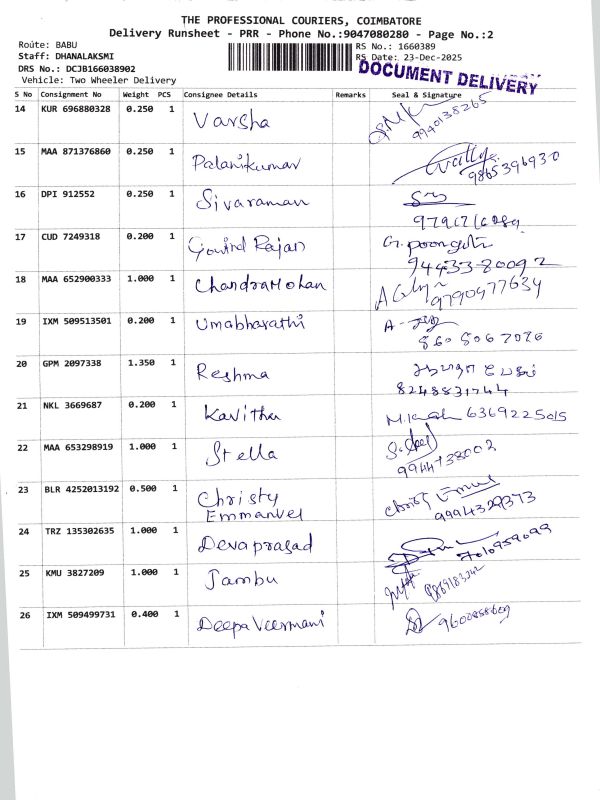 THE PROFESSIONAL COURIERS, COIMBATORE
Delivery Runsheet - PRR - Phone No.:9047080280 - Page No.:2
Route: BABU
RS No.: 1660389
Staff: DHANALAKSMI
RS Date: 23-Dec-2025
DRS No.: DCJB166038902
DOCUMENT DELIVERY
Vehicle: Two Wheeler Delivery
S No Consignment No Weight PCS Consignee Details Remarks Seal & Signature
14 KUR 696880328 0.250 1 Varsha 9940138265
15 MAA 871376860 0.250 1 Palanikumar 9865396930
16 DPI 912552 0.250 1 Sivaraman
17 CUD 7249318 0.200 1 Govind Rajan G. poongodi
94433-80092
18 MAA 652900333 1.000 1 ChandraMohan 9790477634
19 IXM 509513501 0.200 1 Umabharathi
860 806 7026
20 GPM 2097338 1.350 1 Reshma
8248831744
21 NKL 3669687 0.200 1 Kavitha 6369225015
22 MAA 653298919 1.000 1 Stella
9944738002
23 BLR 4252013192 0.500 1 Christy
Emmanvel
9994329373
24 TRZ 135302635 1.000 1 Devaprasad 7010959099
25 KMU 3827209 1.000 1 Jambu
26 IXM 509499731 0.400 1 Deepa Veermani 9600858609